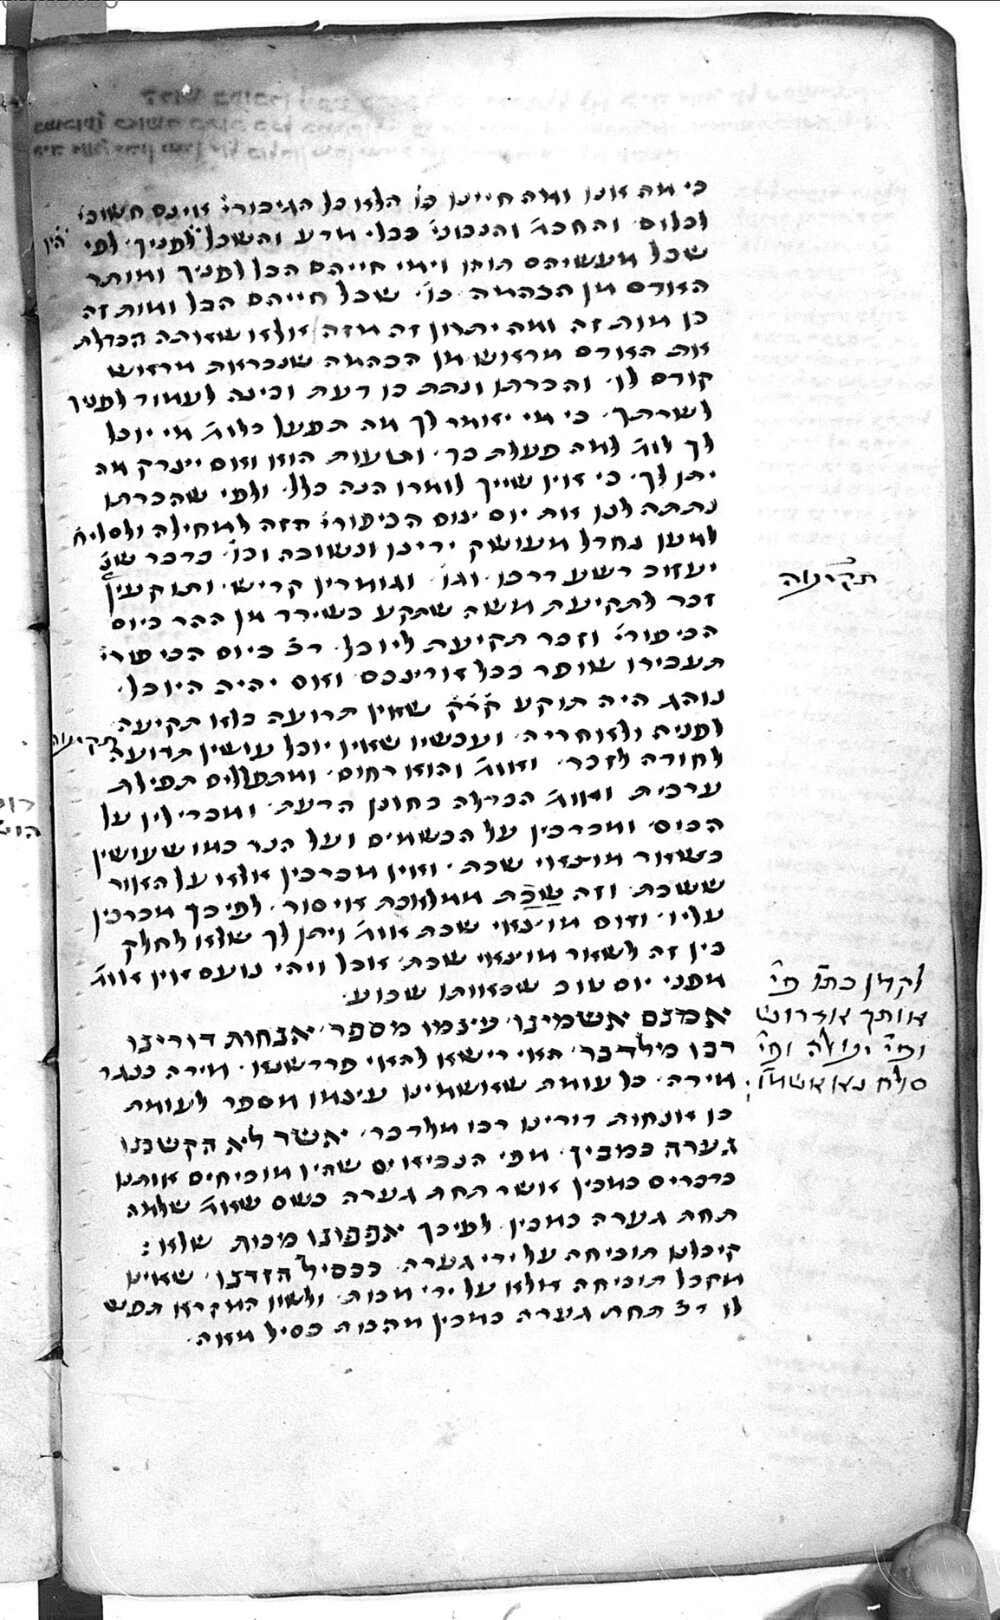 כי מה אנו ומה חיינו כו' הלא כל הגיבורי' אינם חשוכי'
וכלום והחכמ' והנבוני' ככלי מדע והשכל לפניך לפי
שכל מעשיהם תוהו וימי חייהם הבל לפניך ומותר
האדם מן הבהמה כו' שכל חייהם הבל ומות זה
כן מות זה ומה יתרון זה מזה אלא שאתה הבדלת
את האדם מראש מן הבהמה שנבראת מראש
קודם לו והכרתו ונתת בו דעת ובינה לעמוד לפניך
לשרתך כי מי יאמר לך מה תפעל כלומ' מי יוכל
לך לומ' למה פעלת כך וטעות הוא ואם יצדק מה
יתן לך כי אין שייך לומרו הנה כלל ולפי שהכרתו
נתתה לנו את יום צום הכיפורי' הזה למחילה ולסליח'
למען נחדל מעושק ידינו ונשובה וכו' כדבר שנ'
יעזוב רשע דרכו וגו' וגומרין קדיש ותוקעין
זכר לתקיעת משה שתקע כשירד מן ההר ביום
הכיפורי' וזכר תקיעת ליובל דכ' ביום הכיפורי'
תעבירו שופר בכל ארצכם ואם יהיה היובל
נוהג היה תוקע קר"ק שאין תרועה בלא תקיעה
לפניה ולאחריה ועכשיו שאין יובל עושין תרועה
לחודה לזכר ואומ' והוא רחום ומתפללים תפילת
ערבית ואומ' הבדלה בחונן הדעת ומבדילין על
הכוס ומברכין על הבשמים ועל הנר כמו שעושין
בשאר מוצאי שבת ואין מברכין אלא על האור
ששבת וזה שבת ממלאכת איסור לפיכך מברכין
עליו ואם מוצאי שבת אומ' ויתן לך שלא לחלק
בין זה לשאר מוצאי שבת אבל ויהי נועם אין אומ'
מפני יום טוב שבאותו שבוע
אמנם אשמינו עצמו מספר אנחות דורינו
רבו מילדבר האי רישא להאי פרדשנא מידה כנגד
מידה כל עומת שאשמינו עצמו מספר לעומת
כן אנחות דורינו רבו מלדבר אשר לא הקשבנו
גערה כמבין מפי הנביאים שהיו מוכיחים אותנו
בדברים כמבין אשר תחת גערה כשם שאמ' שלמה
תחת גערה במבין לפיכך אפפונו מיכות שלא:
קיבלנו תוכיחה על ידי גערה ככסיל הזדנו שאינו
מקבל תוכיחה אלא על ידי מכות ולשון המקרא תפש
לו דכ' תחת גערה במבין מהכות כסיל מאה
תקיעה
לקמן כתו' פי'
אותך אדרוש
סלח נא אשמ'